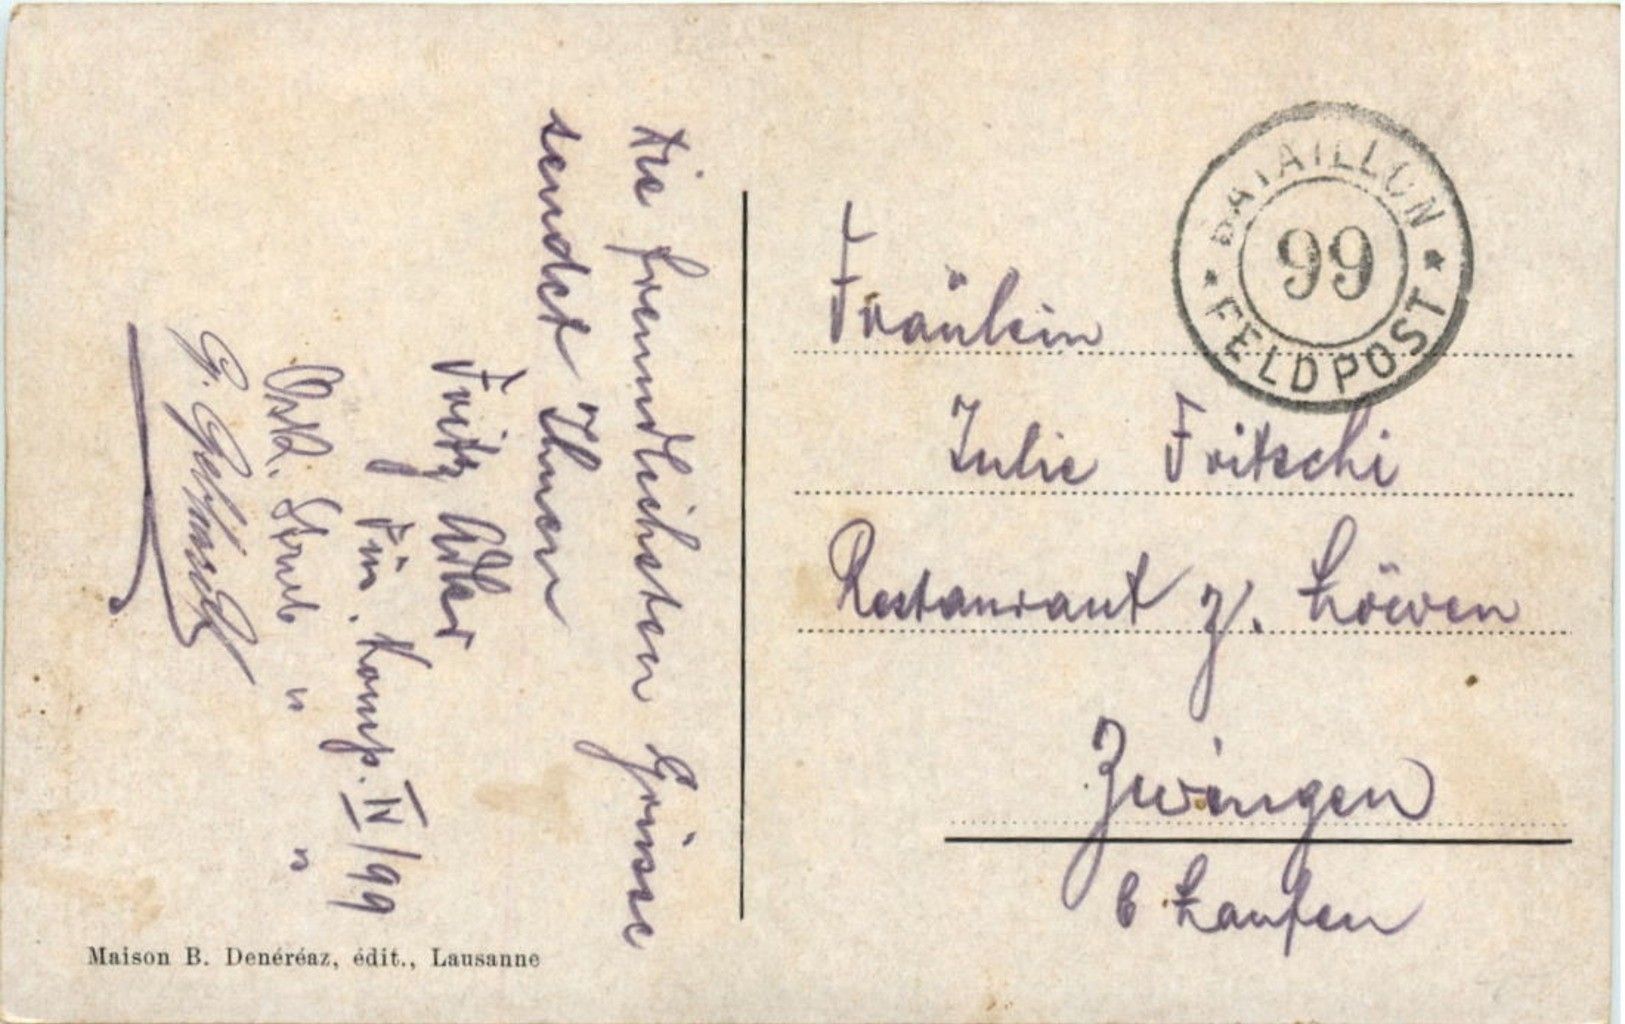 Die freundlichsten Grüsse
sendet Ihnen
Fritz Adler
Füs. Komp. IV/99
Osk. Straub " "
G.
BATAILLON
99
* FELDPOST *
Fräulein
Julie Fritschi
Restaurant z. Löwen
Zwingen
b Laufen
Maison B. Denéréaz, édit., Lausanne